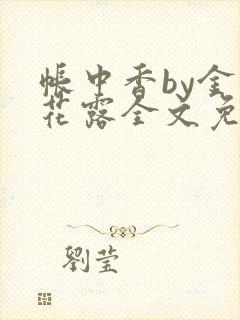 帐中香by金
花露全文免
劉莹